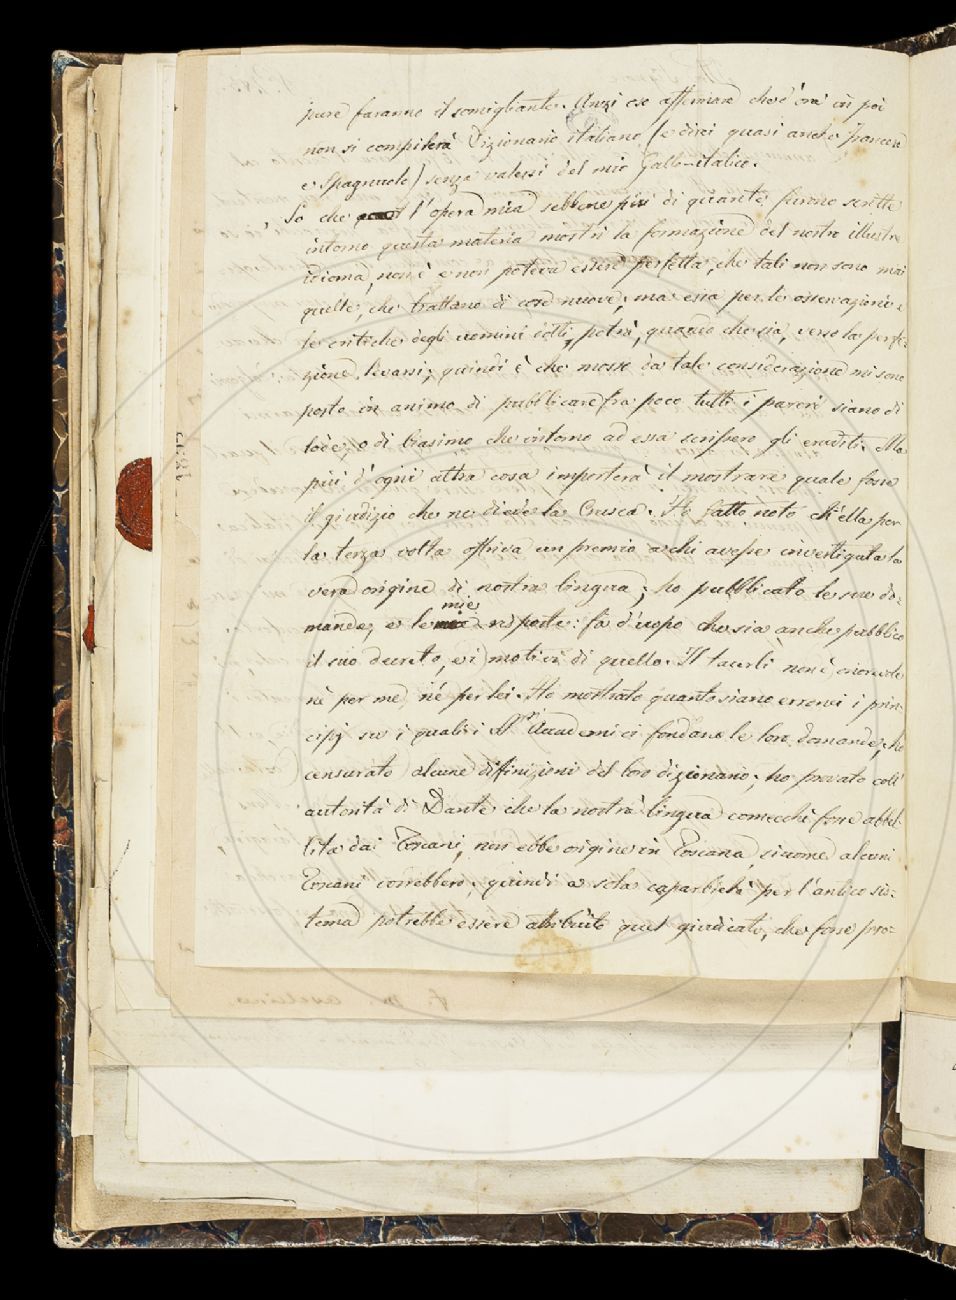 pure faranno il somigliante. Anzi oso affermare che d'ora in poi
non si compilerà Dizionario italiano (e direi quasi anche francese
e Spagnuolo) senza valersi del mio Gallo-italico.
So che l'opera mia sebbene più di quante furono scritte
intorno questa materia mostri la formazione del nostro illustre
idioma, non è e non poteva essere perfetta, che tali non sono mai
quelle, che trattano di cose nuove; ma essa per le osservazioni e
le critiche degli uomini dotti, potrà, quando che sia, verso la perfe-
zione levarsi; quindi è che mosso da tale considerazione mi sono
posto in animo di pubblicare fra poco tutti i pareri siano di
lode, o di biasimo che intorno ad essa scrissero gli eruditi. Ma
più d'ogni altra cosa importerà il mostrare quale fosse
il giudizio che ne diede la Crusca. Ho fatto noto ch'ella per
la terza volta offriva un premio a chi avesse investigata la
vera origine di nostra lingua; ho pubblicato le sue do-
mande, e le mie risposte: fa d'uopo che sia anche pubblico
il suo decreto, e i motivi di quello. Il tacerli non è onorevole
nè per me, nè per lei. Ho mostrato quanto siano erronei i prin-
cipj su i quali i Sri Accademici fondano le loro domande, ho
censurato alcune diffinizioni del loro dizionario, ho provato coll'
autorità di Dante che la nostra lingua comecchè fosse abbel-
lita dai Toscani, non ebbe origine in Toscana siccome alcuni
Toscani vorrebbero; quindi a sola caparbietà per l'antico sis-
tema potrebbe essere attribuito quel giudicato, che fosse pro-